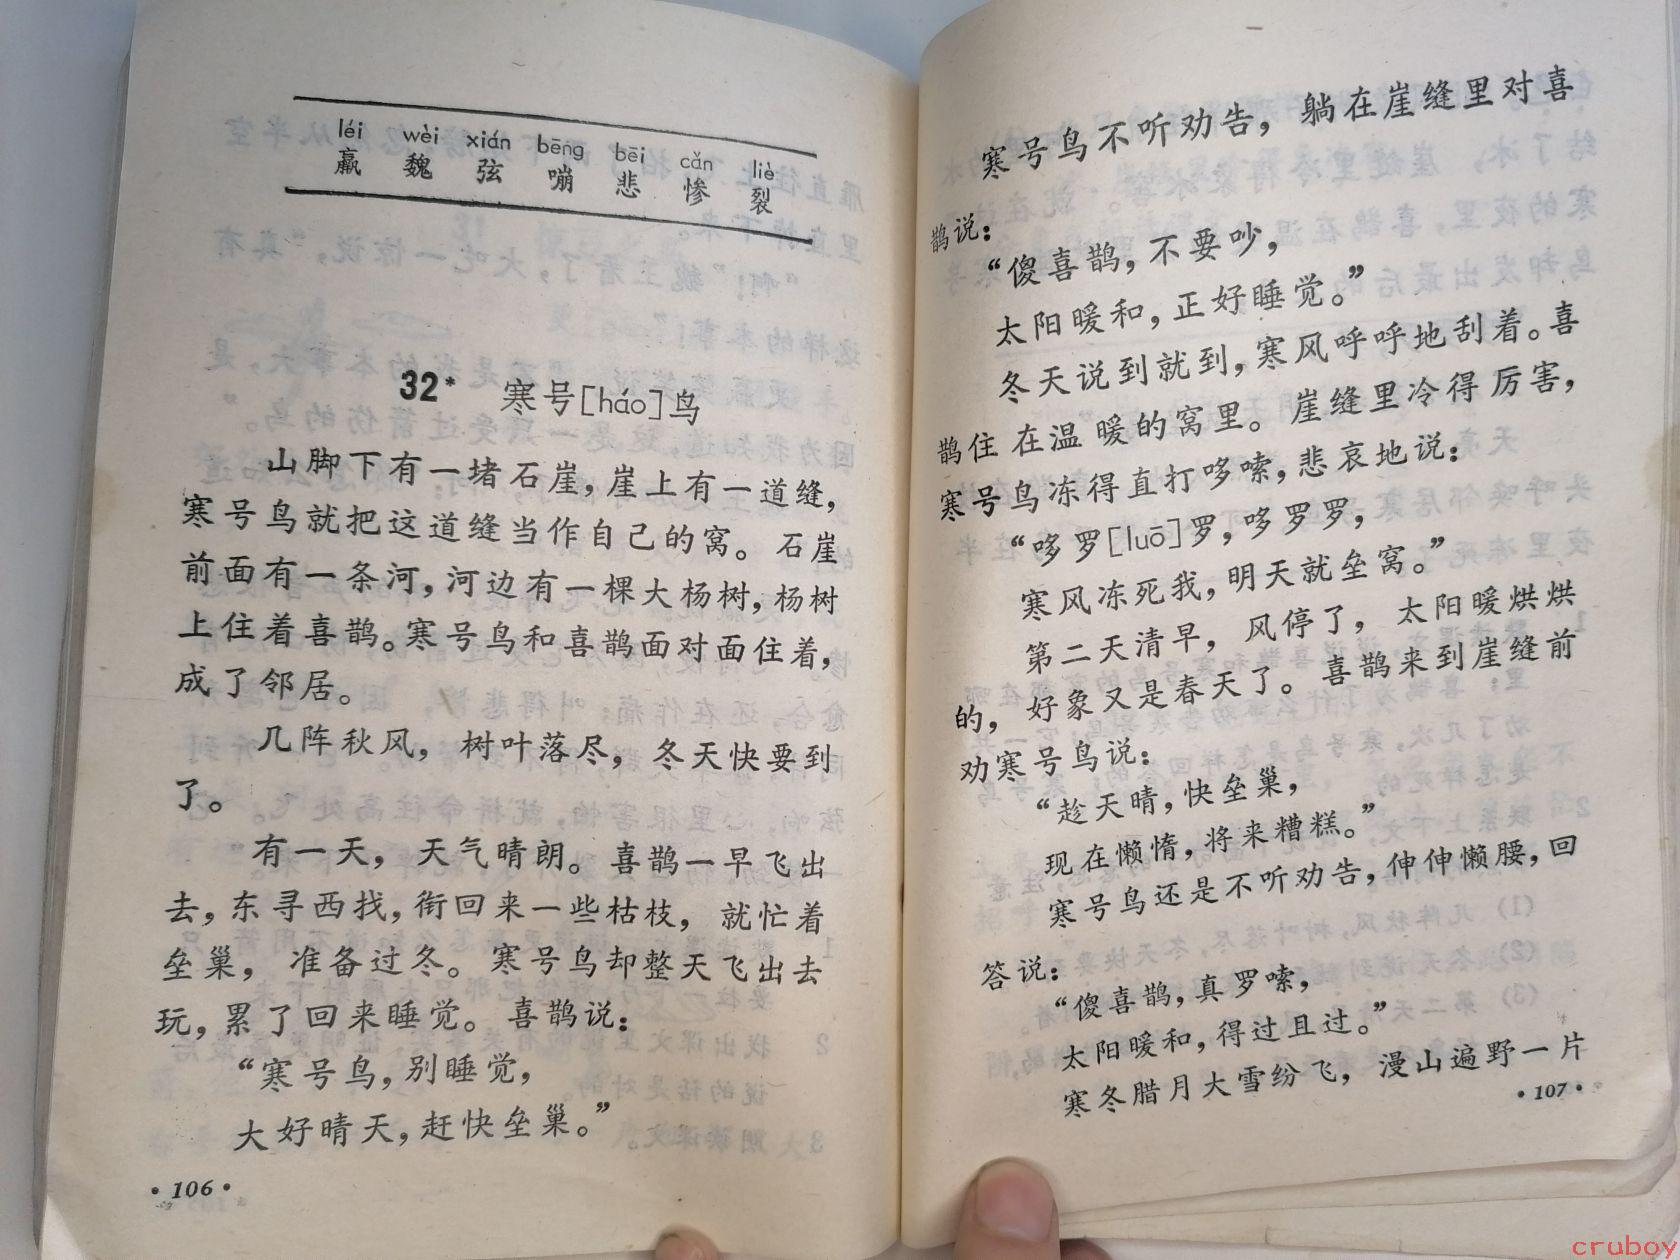 léi wèi xián bēng bēi cǎn liè
羸 魏 弦 嘣 悲 惨 裂
32* 寒号[háo]鸟
山脚下有一堵石崖，崖上有一道缝，
寒号鸟就把这道缝当作自己的窝。石崖
前面有一条河，河边有一棵大杨树，杨树
上住着喜鹊。寒号鸟和喜鹊面对面住着，
成了邻居。
几阵秋风，树叶落尽，冬天快要到
了。
有一天，天气晴朗。喜鹊一早飞出
去，东寻西找，衔回来一些枯枝，就忙着
垒巢，准备过冬。寒号鸟却整天飞出去
玩，累了回来睡觉。喜鹊说：
“寒号鸟，别睡觉，
大好晴天，赶快垒巢。”
·106·
寒号鸟不听劝告，躺在崖缝里对喜
鹊说：
“傻喜鹊，不要吵，
太阳暖和，正好睡觉。”
冬天说到就到，寒风呼呼地刮着。喜
鹊住在温暖的窝里。崖缝里冷得厉害，
寒号鸟冻得直打哆嗦，悲哀地说：
“哆罗[luō]罗，哆罗罗，
寒风冻死我，明天就垒窝。”
第二天清早，风停了，太阳暖烘烘
的，好象又是春天了。喜鹊来到崖缝前
劝寒号鸟说：
“趁天晴，快垒巢，
现在懒惰，将来糟糕。”
寒号鸟还是不听劝告，伸伸懒腰，回
答说：
“傻喜鹊，真罗嗦，
太阳暖和，得过且过。”
寒冬腊月大雪纷飞，漫山遍野一片
·107·
cruboy